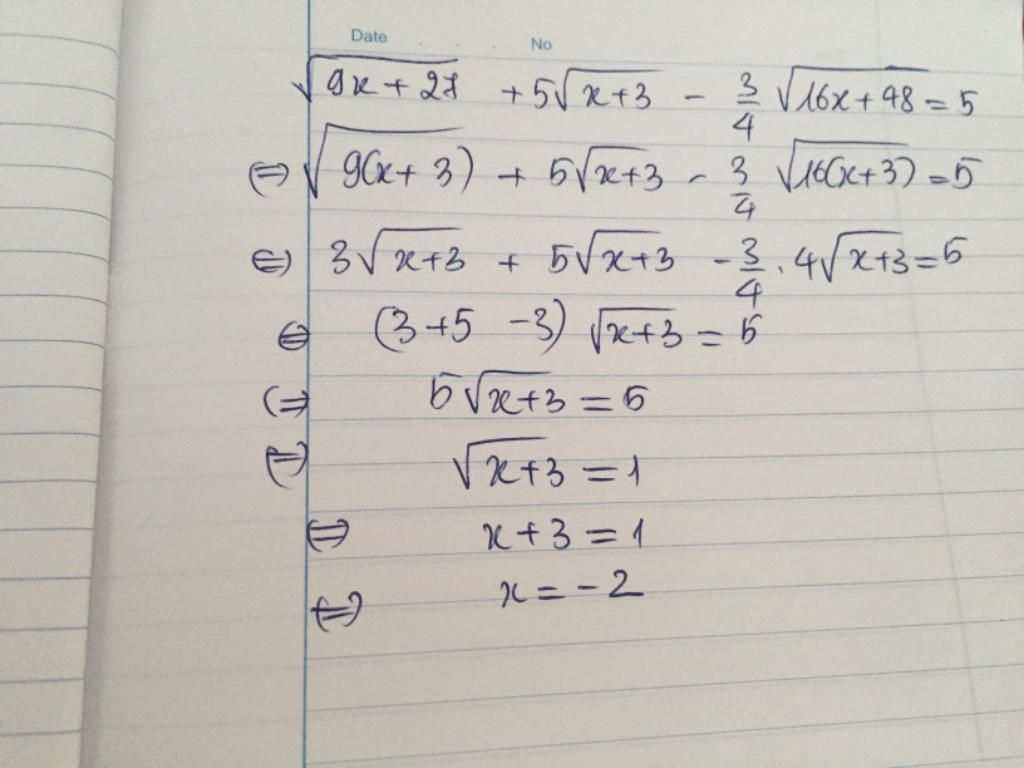 Date No
√(9x + 27) + 5√(x+3) - 3/4 √(16x + 48) = 5
⇔ √(9(x + 3)) + 5√(x+3) - 3/4 √(16(x+3)) = 5
⇔ 3√(x+3) + 5√(x+3) - 3/4 . 4√(x+3) = 5
⇔ (3 + 5 - 3) √(x+3) = 5
⇔ 5√(x+3) = 5
⇔ √(x+3) = 1
⇔ x + 3 = 1
⇔ x = - 2